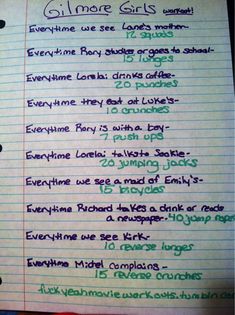 Gilmore Girls workout!
Everytime we see Lane's mother-
12 squats
Everytime Rory studies or goes to school-
15 lunges
Everytime Lorelai drinks coffee-
20 punches
Everytime they eat at Luke's-
10 crunches
Everytime Rory is with a boy-
7 push ups
Everytime Lorelai talks to Sookie-
20 jumping jacks
Everytime we see a maid of Emily's-
15 bicycles
Everytime Richard takes a drink or reads
a newspaper- 40 jump rope
Everytime we see Kirk-
10 reverse lunges
Everytime Michel complains-
15 reverse crunches
fuckyeahmovieworkouts.tumblr.com